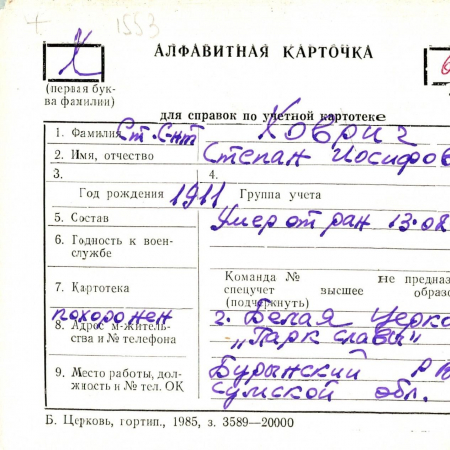 1553
АЛФАВИТНАЯ КАРТОЧКА
Х
(первая бук-
ва фамилии)
для справок по учетной картотеке
1. Фамилия Ст. С-нт Ховрич
2. Имя, отчество Степан Иосифов
3. 4.
Год рождения 1911 Группа учета
5. Состав Умер от ран 13.02
6. Годность к воен-
службе
Команда № не предназ
7. Картотека спецучет высшее образо
(подчеркнуть)
похоронен г. Белая Церко
8. Адрес м-житель-
ства и № телефона „Парк славы"
9. Место работы, дол-
жность и № тел. ОК Бурынский р
Сумской обл.
Б. Церковь, гортип., 1985, з. 3589—20000